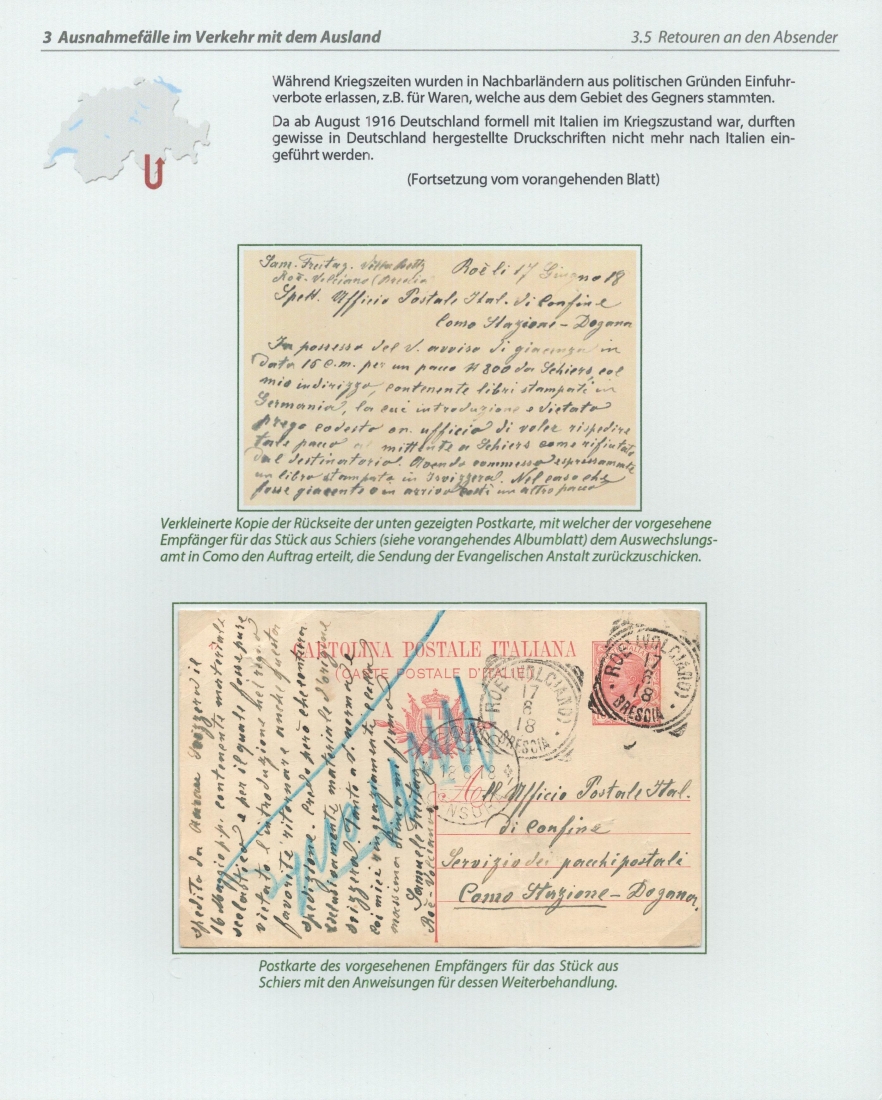 3 Ausnahmefälle im Verkehr mit dem Ausland
3.5 Retouren an den Absender
Während Kriegszeiten wurden in Nachbarländern aus politischen Gründen Einfuhr-
verbote erlassen, z.B. für Waren, welche aus dem Gebiet des Gegners stammten.
Da ab August 1916 Deutschland formell mit Italien im Kriegszustand war, durften
gewisse in Deutschland hergestellte Druckschriften nicht mehr nach Italien ein-
geführt werden.
(Fortsetzung vom vorangehenden Blatt)
Sam. Freitag. Villa
Roè-Volciano (Brescia)
Roè li 17 Giugno 18
Spett. Ufficio Postale Ital. di Confine
Como Stazione - Dogana
In possesso del V. avviso di giacenza in
data 15 c.m. per un pacco N 800 da Schiers col
mio indirizzo, contenente libri stampati in
Germania, la cui introduzione è vietato
prego codesto on. ufficio di voler rispedire
tale pacco al mittente a Schiers come rifiutato
dal destinatario. Avendo commesso espressamente
un libro stampato in Isvizzera. Nel caso che
fosse giacente o in arrivo costì un altro pacco
Verkleinerte Kopie der Rückseite der unten gezeigten Postkarte, mit welcher der vorgesehene
Empfänger für das Stück aus Schiers (siehe vorangehendes Albumblatt) dem Auswechslungs-
amt in Como den Auftrag erteilt, die Sendung der Evangelischen Anstalt zurückzuschicken.
CARTOLINA POSTALE ITALIANA
(CARTE POSTALE D'ITALIE)
ROÈ (VOLCIANO)
17
6
18
BRESCIA
ROÈ (VOLCIANO)
17
6
18
BRESCIA
All. Ufficio Postale Ital.
di Confine
Servizio dei pacchi postali
Como Stazione - Dogana.
spedito da Aarau Svizzera il
16 Maggio p.p. contenente materiale
scolastico e per il quale fosse pure
vietato l'introduzione nel regio
favorite ritornare anche questa
spedizione. Credo però che contenera
esclusivamente materiale d'origine
svizzera. Tanto a V. norma e
coi miei ringraziamenti colla
massima stima mi firmo
Samuele Freitag
Roè-Volciano
Postkarte des vorgesehenen Empfängers für das Stück aus
Schiers mit den Anweisungen für dessen Weiterbehandlung.